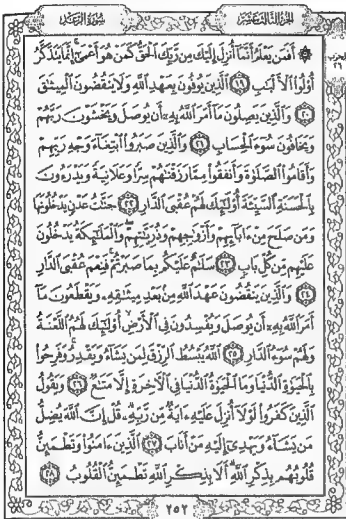 سُورَةُ الرَّعْدِ
الجُزْءُ الثَّالِثَ عَشَرَ
۞ أَفَمَن يَعْلَمُ أَنَّمَآ أُنزِلَ إِلَيْكَ مِن رَّبِّكَ ٱلْحَقُّ كَمَنْ هُوَ أَعْمَىٰٓ إِنَّمَا يَتَذَكَّرُ
أُو۟لُوا۟ ٱلْأَلْبَٰبِ ١٩ ٱلَّذِينَ يُوفُونَ بِعَهْدِ ٱللَّهِ وَلَا يَنقُضُونَ ٱلْمِيثَٰقَ
٢٠ وَٱلَّذِينَ يَصِلُونَ مَآ أَمَرَ ٱللَّهُ بِهِۦٓ أَن يُوصَلَ وَيَخْشَوْنَ رَبَّهُمْ
وَيَخَافُونَ سُوٓءَ ٱلْحِسَابِ ٢١ وَٱلَّذِينَ صَبَرُوا۟ ٱبْتِغَآءَ وَجْهِ رَبِّهِمْ
وَأَقَامُوا۟ ٱلصَّلَوٰةَ وَأَنفَقُوا۟ مِمَّا رَزَقْنَٰهُمْ سِرًّا وَعَلَانِيَةً وَيَدْرَءُونَ
بِٱلْحَسَنَةِ ٱلسَّيِّئَةَ أُو۟لَٰٓئِكَ لَهُمْ عُقْبَى ٱلدَّارِ ٢٢ جَنَّٰتُ عَدْنٍ يَدْخُلُونَهَا
وَمَن صَلَحَ مِنْ ءَابَآئِهِمْ وَأَزْوَٰجِهِمْ وَذُرِّيَّٰتِهِمْ وَٱلْمَلَٰٓئِكَةُ يَدْخُلُونَ
عَلَيْهِم مِّن كُلِّ بَابٍ ٢٣ سَلَٰمٌ عَلَيْكُم بِمَا صَبَرْتُمْ فَنِعْمَ عُقْبَى ٱلدَّارِ
٢٤ وَٱلَّذِينَ يَنقُضُونَ عَهْدَ ٱللَّهِ مِنۢ بَعْدِ مِيثَٰقِهِۦ وَيَقْطَعُونَ مَآ
أَمَرَ ٱللَّهُ بِهِۦٓ أَن يُوصَلَ وَيُفْسِدُونَ فِى ٱلْأَرْضِ أُو۟لَٰٓئِكَ لَهُمُ ٱللَّعْنَةُ
وَلَهُمْ سُوٓءُ ٱلدَّارِ ٢٥ ٱللَّهُ يَبْسُطُ ٱلرِّزْقَ لِمَن يَشَآءُ وَيَقْدِرُ وَفَرِحُوا۟
بِٱلْحَيَوٰةِ ٱلدُّنْيَا وَمَا ٱلْحَيَوٰةُ ٱلدُّنْيَا فِى ٱلْءَاخِرَةِ إِلَّا مَتَٰعٌ ٢٦ وَيَقُولُ
ٱلَّذِينَ كَفَرُوا۟ لَوْلَآ أُنزِلَ عَلَيْهِ ءَايَةٌ مِّن رَّبِّهِۦ قُلْ إِنَّ ٱللَّهَ يُضِلُّ
مَن يَشَآءُ وَيَهْدِىٓ إِلَيْهِ مَنْ أَنَابَ ٢٧ ٱلَّذِينَ ءَامَنُوا۟ وَتَطْمَئِنُّ
قُلُوبُهُم بِذِكْرِ ٱللَّهِ أَلَا بِذِكْرِ ٱللَّهِ تَطْمَئِنُّ ٱلْقُلُوبُ ٢٨
٢٥٢
الحزب
٢٦